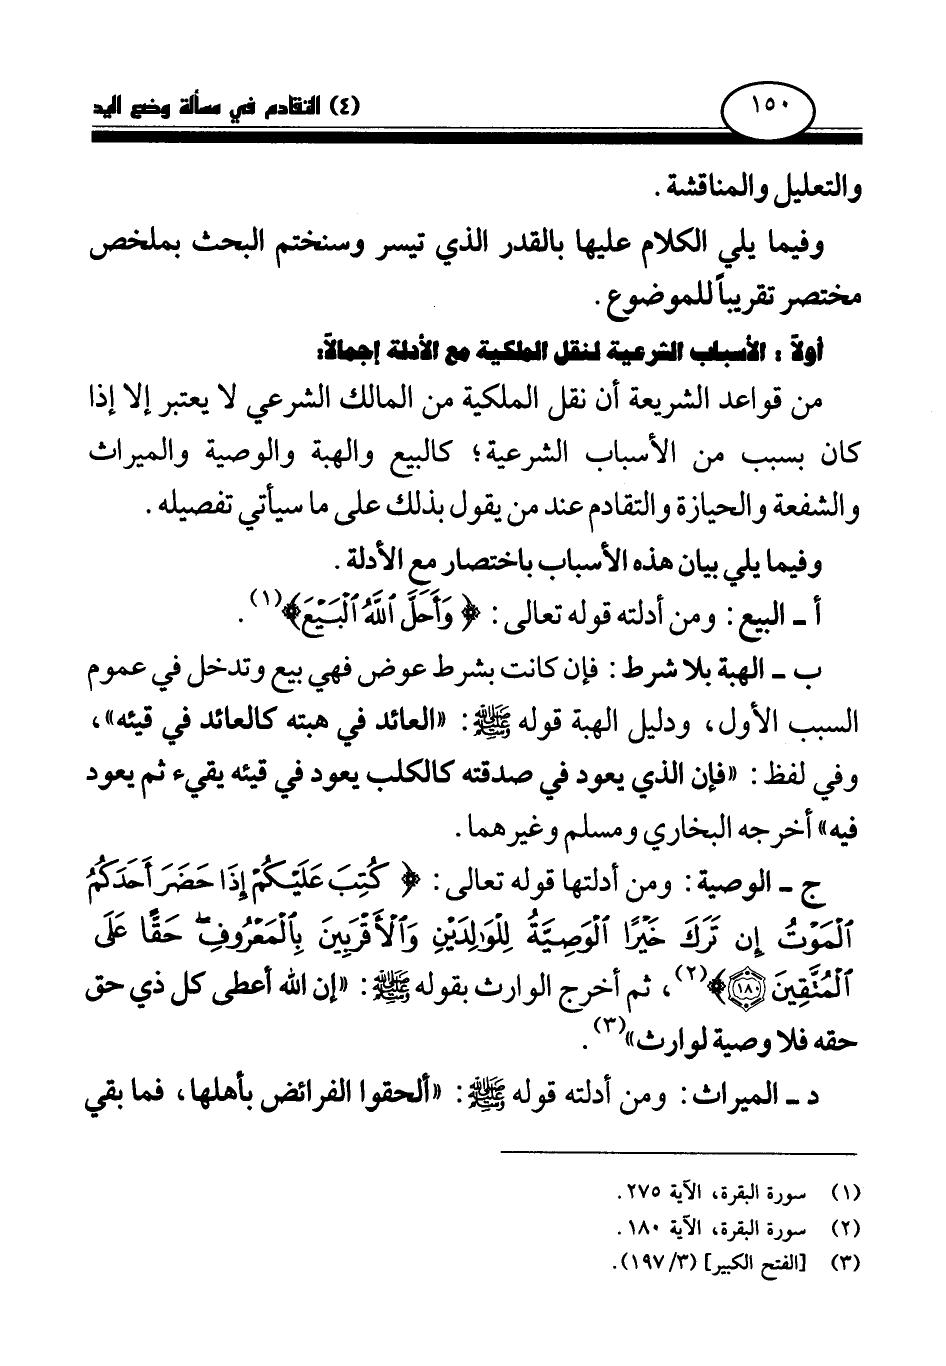 ١٥٠
(٤) التقادم في مسألة وضع اليد
والتعليل والمناقشة .
وفيما يلي الكلام عليها بالقدر الذي تيسر وسنختم البحث بملخص
مختصر تقريباً للموضوع .
أولاً : الأسباب الشرعية لنقل الملكية مع الأدلة إجمالاً:
من قواعد الشريعة أن نقل الملكية من المالك الشرعي لا يعتبر إلا إذا
كان بسبب من الأسباب الشرعية؛ كالبيع والهبة والوصية والميراث
والشفعة والحيازة والتقادم عند من يقول بذلك على ما سيأتي تفصيله .
وفيما يلي بيان هذه الأسباب باختصار مع الأدلة .
أ ـ البيع : ومن أدلته قوله تعالى : ﴿ وَأَحَلَّ ٱللَّهُ ٱلْبَيْعَ﴾(١) .
ب ـ الهبة بلا شرط : فإن كانت بشرط عوض فهي بيع وتدخل في عموم
السبب الأول، ودليل الهبة قوله ﷺ : «العائد في هبته كالعائد في قيئه»،
وفي لفظ : «فإن الذي يعود في صدقته كالكلب يعود في قيئه يقيء ثم يعود
فيه» أخرجه البخاري ومسلم وغيرهما .
ج ـ الوصية : ومن أدلتها قوله تعالى : ﴿ كُتِبَ عَلَيْكُمْ إِذَا حَضَرَ أَحَدَكُمُ
ٱلْمَوْتُ إِن تَرَكَ خَيْرًا ٱلْوَصِيَّةُ لِلْوَٰلِدَيْنِ وَٱلْأَقْرَبِينَ بِٱلْمَعْرُوفِ ۖ حَقًّا عَلَى
ٱلْمُتَّقِينَ ١٨٠﴾(٢)، ثم أخرج الوارث بقوله ﷺ : «إن الله أعطى كل ذي حق
حقه فلا وصية لوارث»(٣) .
د ـ الميراث : ومن أدلته قوله ﷺ : «ألحقوا الفرائض بأهلها، فما بقي
(١) سورة البقرة، الآية ٢٧٥ .
(٢) سورة البقرة، الآية ١٨٠ .
(٣) [الفتح الكبير] (٣/ ١٩٧).